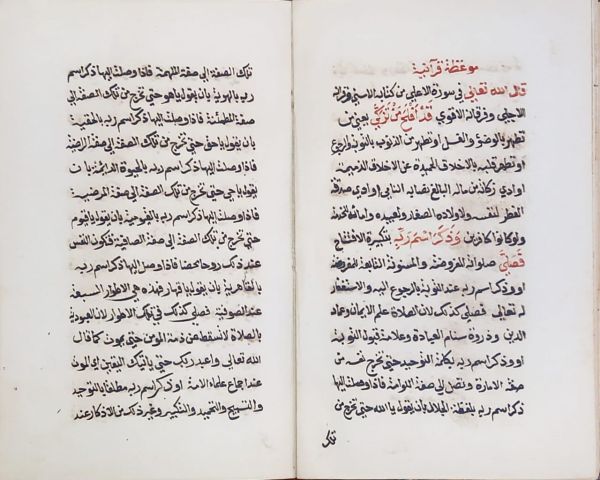 موعظة قرآنية
قال الله تعالى في سورة الاعلى من كتابه الاسنى وقرآنه
الاجلى وفرقانه الاقوى قَدْ أَفْلَحَ مَنْ تَزَكَّى يعني من
تطهر بالوضوء والغسل او تطهر من الذنوب بالتوبة والرجوع
او تطهر قلبه بالاخلاق الحميدة عن الاخلاق الذميمة
او ادى زكاة من ماله البالغ نصابه النامي او ادى صدقة
الفطر لنفسه ولاولاده الصغار ولعبيده وامائه للخدمة
ولو كانوا كافرين وَذَكَرَ اسْمَ رَبِّهِ بتكبيرة الافتتاح
فَصَلَّى صلواته المفروضة والمسنونة التابعة للمفروضة
او وذكر اسم ربه عند التوبة بالرجوع اليه والاستغفار
له تعالى فصلى كذلك لان الصلاة علم الايمان وعماد
الدين وذروة سنام العبادة وعلامة قبول التوبة
او وذكر اسم ربه بكلمة التوحيد حتى تخرج نفسه من
صفة الامارة وتصل الى صفة اللوامة فاذا وصلت اليها
ذكر اسم ربه بلفظة الجلال بان يقول يا الله حتى تخرج من
تلك
تلك الصفة الى صفة الملهمة فاذا وصلت اليها ذكر اسم
ربه بالهوية بان يقول يا هو حتى تخرج من تلك الصفة الى
صفة المطمئنة فاذا وصلت اليها ذكر اسم ربه بالحقية
بان يقول يا حق حتى تخرج من تلك الصفة الى صفة الراضية
فاذا وصلت اليها ذكر اسم ربه بالحيوة الدائمة بان
يقول يا حي حتى تخرج من تلك الصفة الى صفة المرضية
فاذا وصلت اليها ذكر اسم ربه بالقيومية بان يقول يا قيوم
حتى تخرج من تلك الصفة الى صفة الصافية فتكون النفس
عند ذلك روحا محضا فاذا وصل اليها ذكر اسم ربه
بالقاهرية بان يقول يا قهار فهذه هي الاطوار السبعة
عند الصوفية فصلى كذلك في تلك الاطوار لان العبودية
بالصلاة لا تسقط عن ذمة المؤمن حتى يموت كما قال
الله تعالى واعبد ربك حتى ياتيك اليقين اي الموت
عند اجماع علماء الامة او ذكر اسم ربه مطلقا بالتوحيد
والتسبيح والتحميد والتكبير وغير ذلك من الاذكار عند